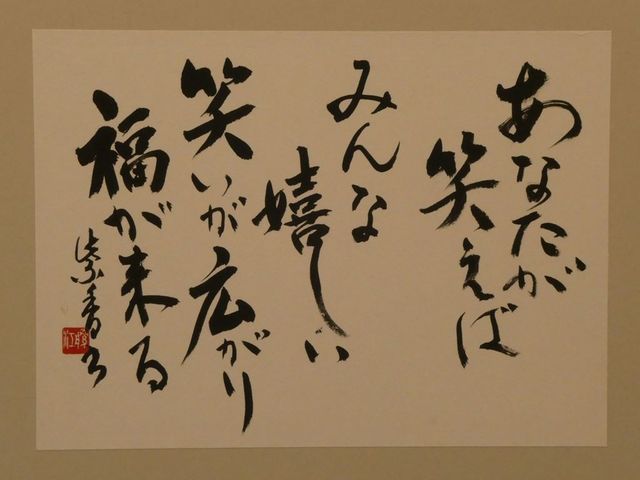 あなたが
笑えば
みんな
嬉しい
笑いが広がり
福が来る
紫香